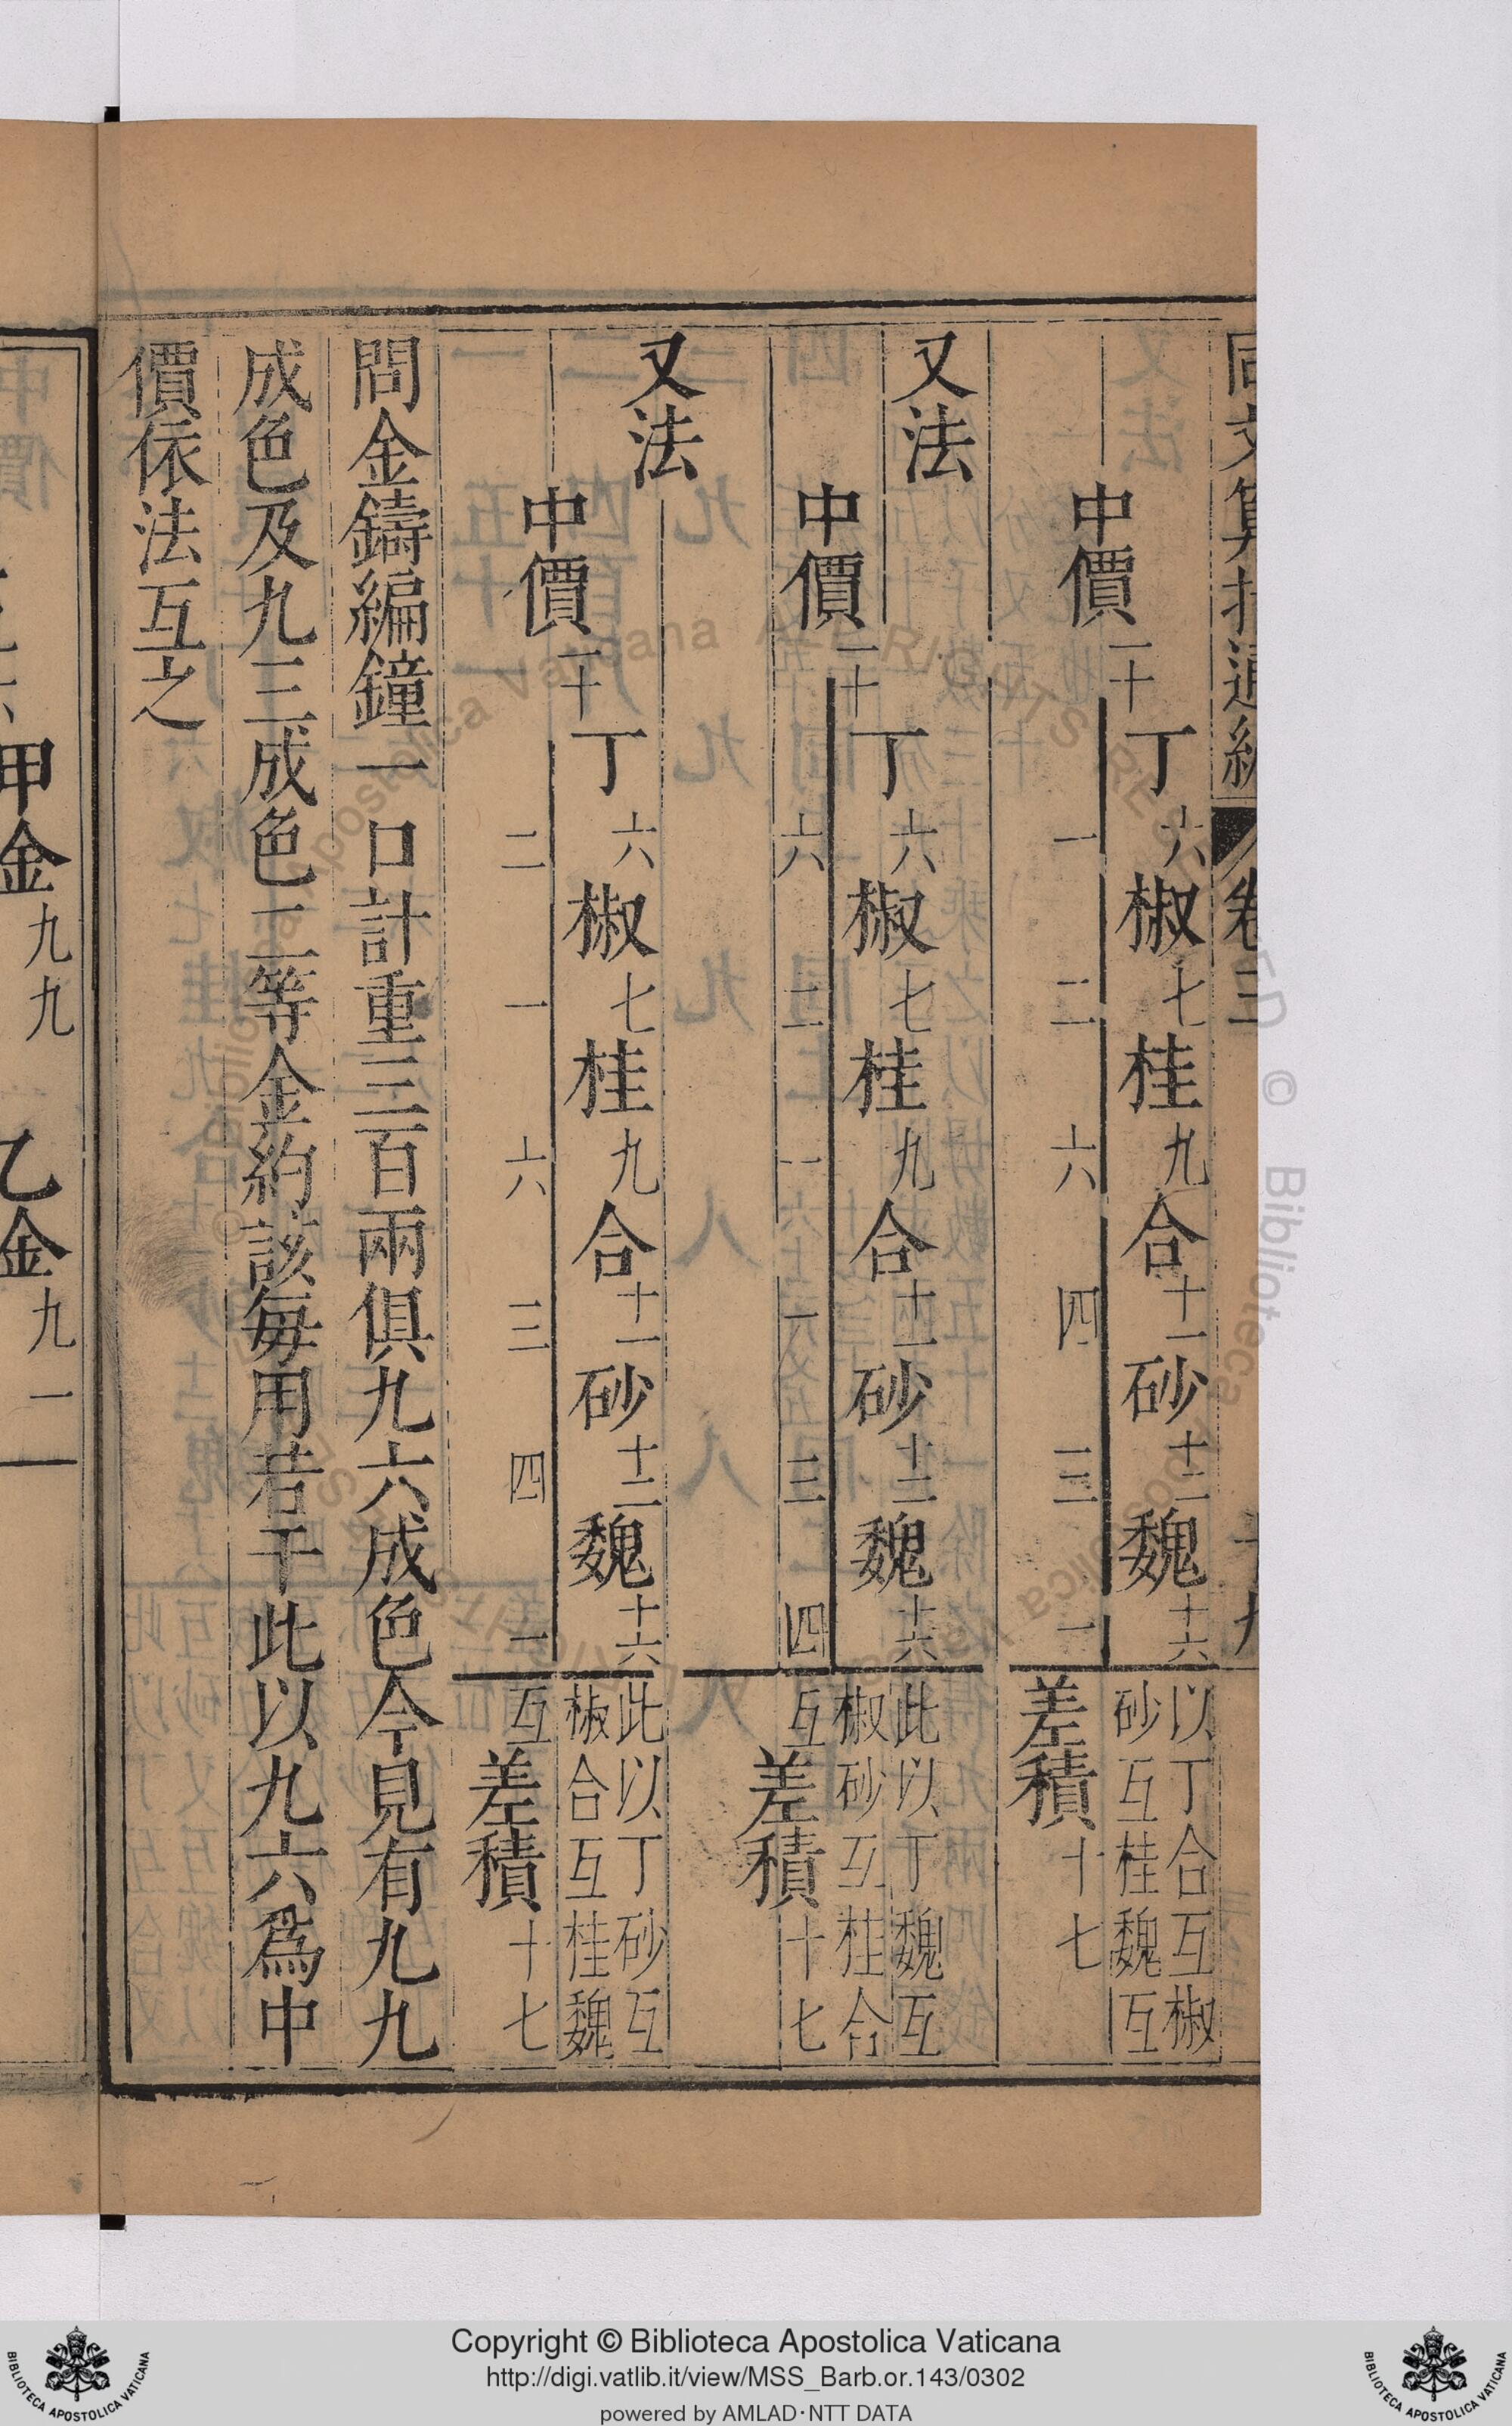 同文算指通編 卷三
丁六椒七桂九合十一砂十二魏十六 以丁合互椒
砂互桂魏互
中價一十
一 二 六 四 三 一 差積十七
又法
丁六椒七桂九合十一砂十二魏十六 此以丁魏互
椒砂互桂合
互
中價一十
六 二 一 一 三 四 差積十七
又法
丁六椒七桂九合十一砂十二魏十六 此以丁砂互
椒合互桂魏
互
中價一十
二 一 六 三 四 一 差積十七
問金鑄編鐘一口計重三百兩俱九六成色今見有九九
成色及九三成色二等金約該每用若干此以九六爲中
價依法互之
甲金九九 乙金九
Copyright © Biblioteca Apostolica Vaticana
http://digi.vatlib.it/view/MSS_Barb.or.143/0302
powered by AMLAD·NTT DATA
BIBLIOTECA APOSTOLICA VATICANA
BIBLIOTECA APOSTOLICA VATICANA